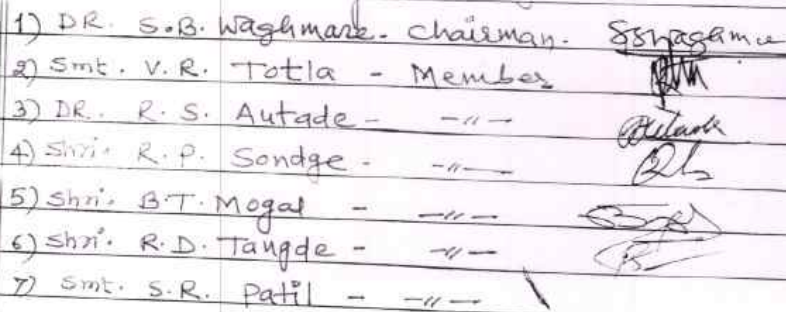 1) DR. S.B. Waghmare - Chairman.
2) Smt. V.R. Totla - Member
3) DR. R.S. Autade - -〃-
4) Shri. R.P. Sondge - -〃-
5) Shri. B.T. Mogal - -〃-
6) Shri. R.D. Tangde - -〃-
7) Smt. S.R. Patil - -〃-